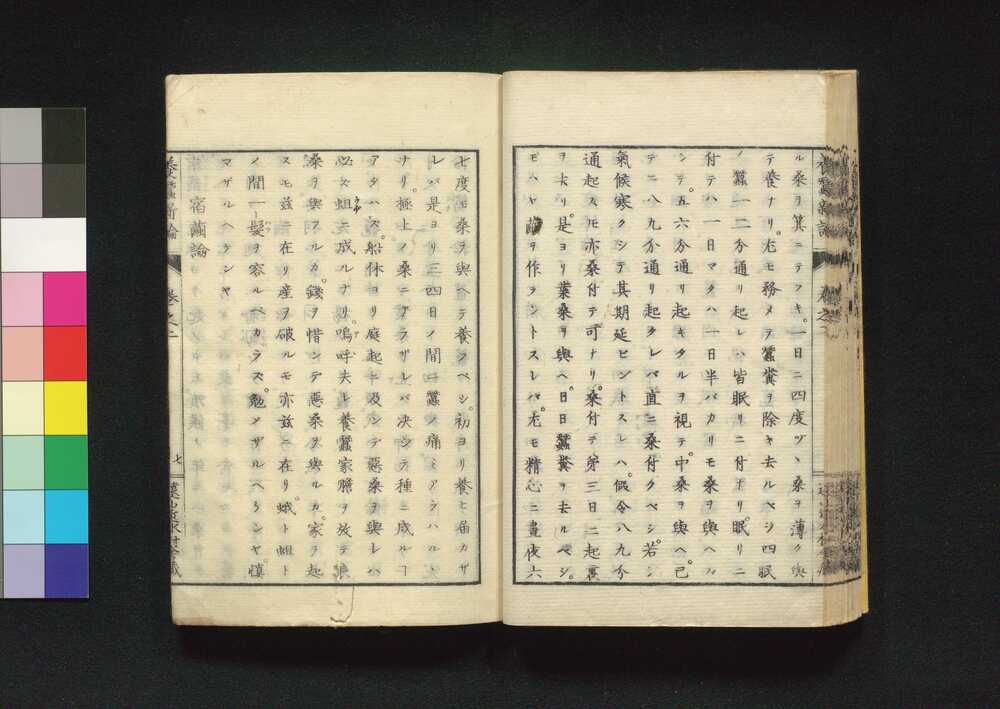 ル桑ヲ箕ニテフキ。一日ニ四度ヅヽ桑ヲ薄ク與
テ養ナリ。尤モ務メテ蠶糞ヲ除キ去ルベシ四眠
ノ蠶一二分通リ起レハ皆眠リニ付ナリ。眠リニ
付テハ一日マタハ一日半バカリモ桑ヲ與ヘズ
シテ。五六分通リ起キタルヲ視テ。中桑ヲ與ヘ。已
テニ八九分通リ起クレバ直ニ桑付クベシ。若シ
氣候寒クシテ其期延ビントスレハ。假令八九分
通起スルモ亦桑付テ可ナリ。桑付テ第三日ニ起裏
ヲ大リ。是ヨリ葉桑ヲ與ヘ。日日蠶糞ヲ去ルベシ。
モハヤ繭ヲ作ラントスレバ。尤モ精心ニ晝夜六
七度モ桑ヲ與ヘテ養フベシ。初ヨリ養ヒ届カザ
レバ是ヨリ三四日ノ間ニ蠶ノ痛ミアラハルヽ
ナリ。極上ノ桑ニアラザレバ決シテ種ニ成ルヿ
アタハズ。船休ヨリ庭起ニ及ンデ惡桑ヲ與レバ
必ス蛆ト成ルナリ嗚呼夫レ養蠶家膽ヲ放テ良
桑ヲ與フルカ。錢ヲ惜ンデ惡桑ヲ與ルカ。家ヲ起
スモ玆ニ在リ産ヲ破ルモ亦玆ニ在リ。蛾ト蛆ト
ノ間一髪ヲ容ルベカラズ。勉メザルヘケンヤ。慎
マザルヘケンヤ
宿繭論
養蠶新論
卷之二
七